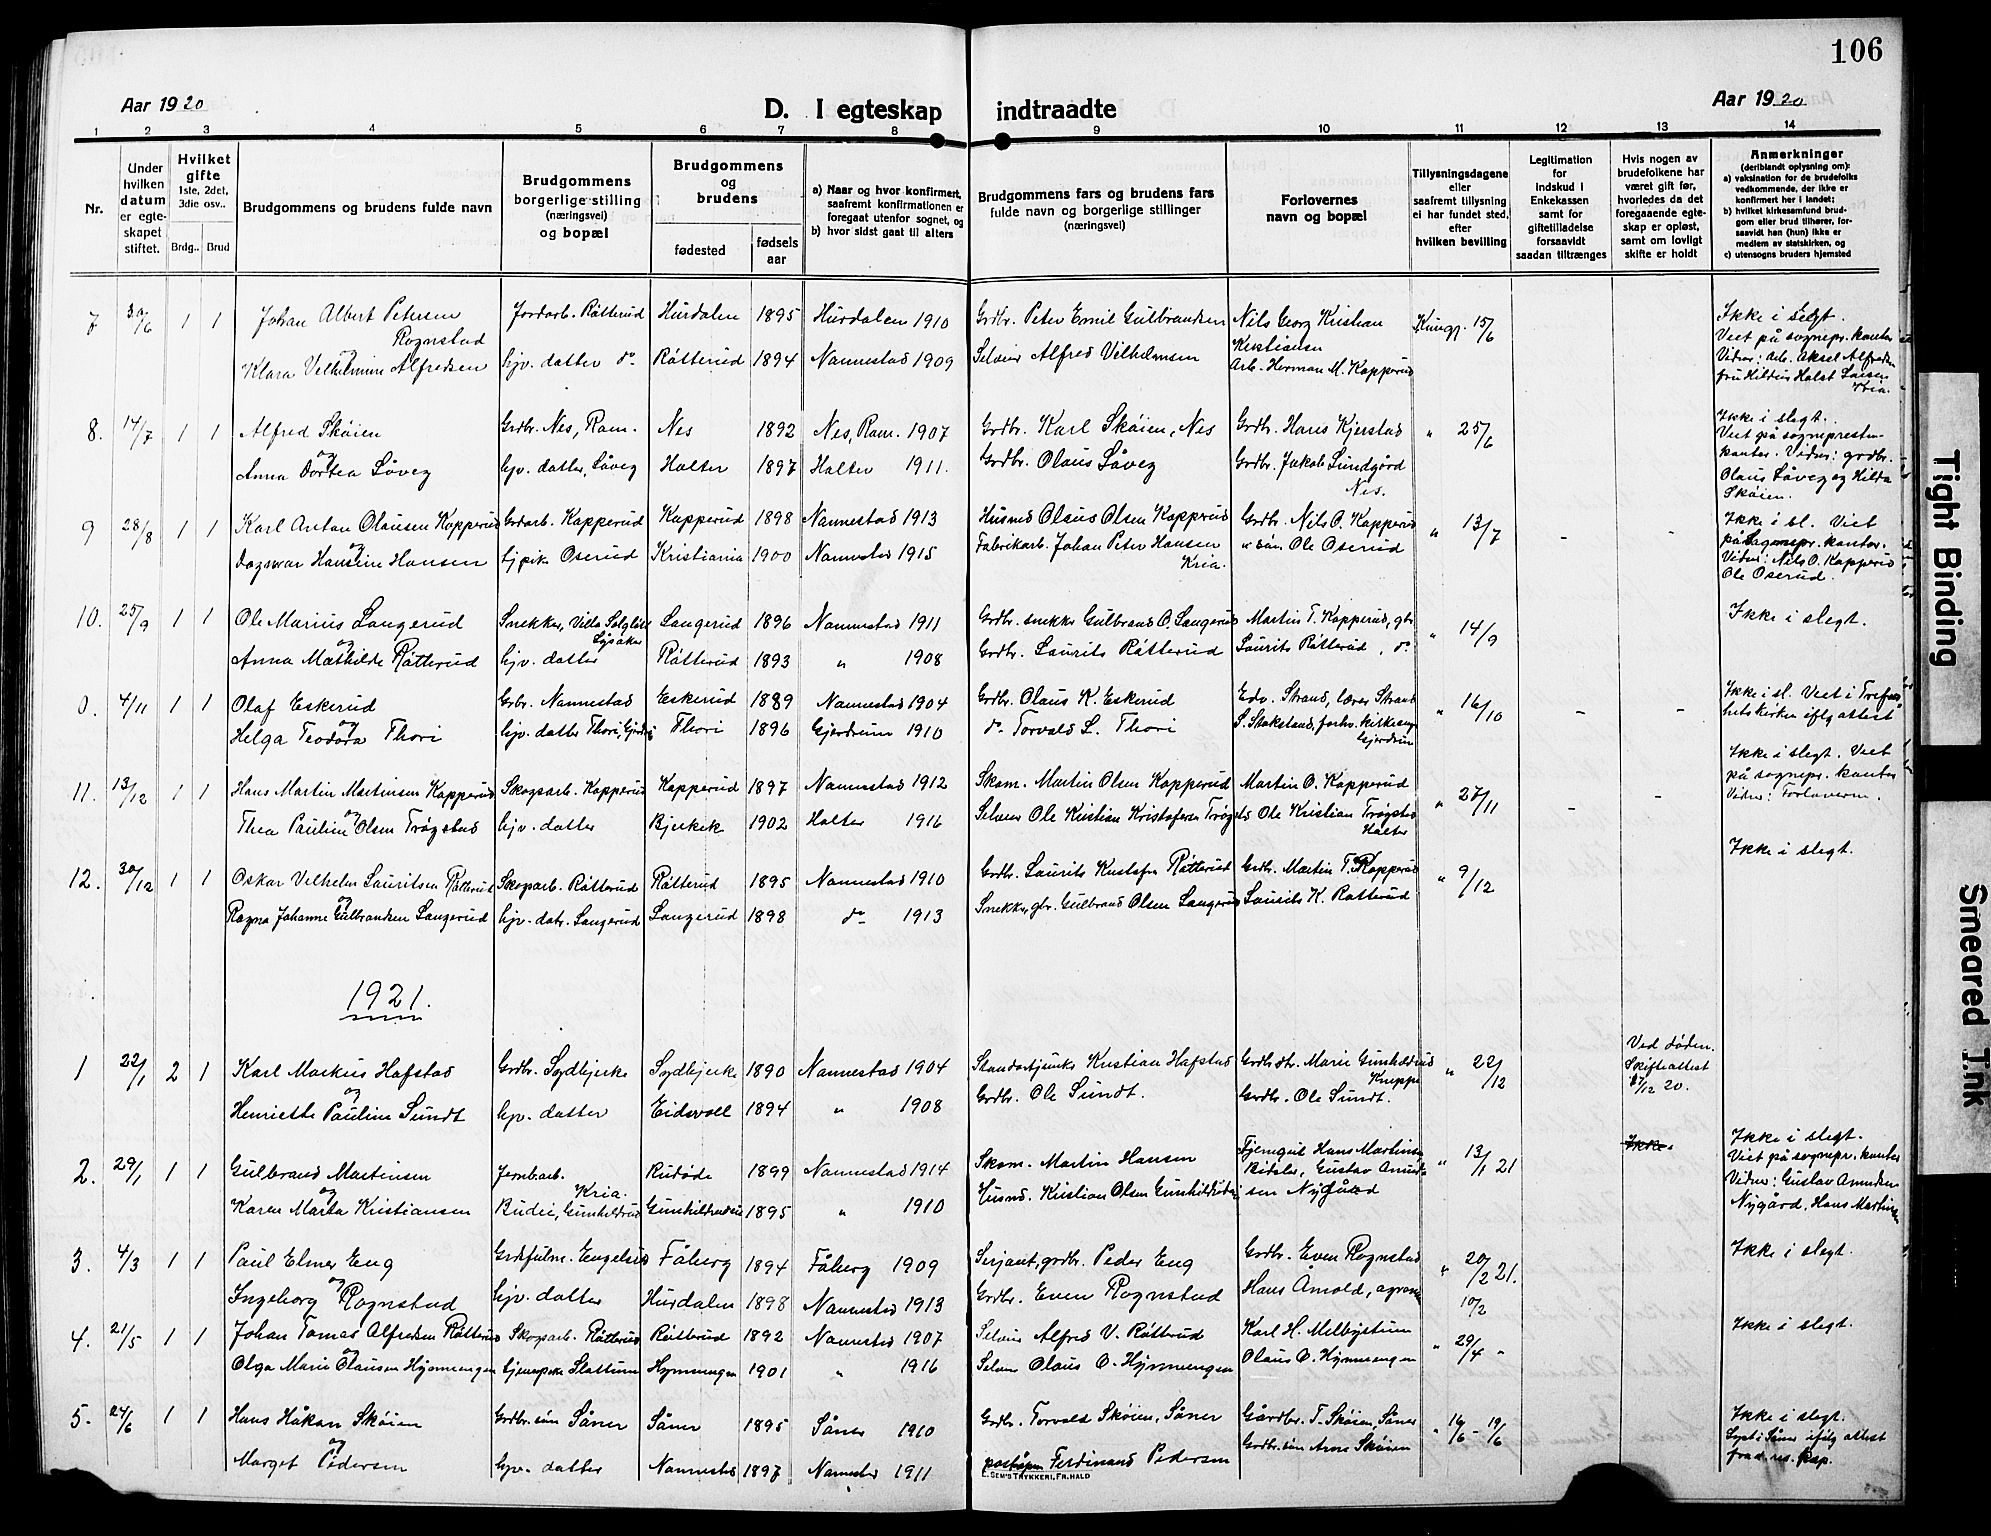 106
Aar 1920
D. I egteskap indtraadte
Aar 1920
1 2 3 4 5 6 7 8 9 10 11 12 13 14
Nr.
Under hvilken datum er egteskapet stiftet.
Hvilket gifte 1ste, 2det, 3die osv..
Brdg.. Brud
Brudgommens og brudens fulde navn
Brudgommens borgerlige stilling (næringsvei) og bopæl
Brudgommens og brudens
fødested
fødsels aar
a) Naar og hvor konfirmert, saafremt konfirmationen er foregaat utenfor sognet, og
b) hvor sidst gaat til alters
Brudgommens fars og brudens fars fulde navn og borgerlige stillinger (næringsvei)
Forlovernes navn og bopæl
Tillysningsdagene eller saafremt tillysning ei har fundet sted, efter hvilken bevilling
Legitimation for indskud i Enkekassen samt for giftetilladelse forsaavidt saadan tiltrænges
Hvis nogen av brudefolkene har været gift før, hvorledes da det foregaaende egteskap er opløst, samt om lovligt skifte er holdt
Anmerkninger (deriblandt oplysning om):
a) vaksination for de brudefolks vedkommende, der ikke er konfirmert her i landet;
b) hvilket kirkesamfund brudgom eller brud tilhører, forsaavidt han (hun) ikke er medlem av statskirken, og
c) utensogns bruders hjemsted
7 30/6 1 1 Johan Albert Petersen Rognstad Jordarb. Råtterud Hurdalen 1895 Hurdalen 1910 Grdbr. Peter Emil Gulbrandsen Nils Georg Kristian Kristiansen Kungj. 15/6 Ikke i slegt.
og Klara Vilhelmine Alfredsen hjv. datter do Råtterud 1894 Nannestad 1909 Selveier Alfred Vilhelmsen Arb. Herman M. Kopperud Viet på sognepr. kontor Vidner: Arb. Aksel Alfredsen fru Hildur Holst Larsen Kria.
8. 14/7 1 1 Alfred Skøien Grdbr. Nes, Rom. Nes 1892 Nes, Rom. 1907 Grdbr. Karl Skøien, Nes Grdbr. Hans Kjerstad " 25/6 Ikke i slegt.
og Anna Dortea Løveg hjv. datter, Løveg Holter 1897 Holter 1911. Grdbr. Olaus Løveg Grdbr. Jakob Sundgård Nes. Viet på sogneprestenkontor. Vidner: grdbr. Olaus Løveg og Hilda Skøien.
9 28/8 1 1 Karl Anton Olausen Kopperud Grdarb. Kopperud Kopperud 1898 Nannestad 1913 Husmd Olaus Olsen Kopperud Grdbr. Nils O. Kopperud " 13/7 - - Ikke i sl. Viet
og Dagmar Hansine Hansen Oserud Kristiania 1900 Nannestad 1915 Fabrikarb. Johan Peter Hansen Kria. " søn Ole Oserud på sognepr. kontor. Vidner: Nils O. Kopperud Ole Oserud.
10. 25/9 1 1 Ole Marius Langerud Snekker, Villa Lysaker Langerud 1896 Nannestad 1911 Grdbr. snekker Gulbrand O. Langerud Martin T. Kopperud, gbr. " 14/9 Ikke i slegt.
og Anna Mathilde Råtterud hjv. datter Råtterud 1893 " 1908 Grdbr. Laurits Råtterud Laurits Råtterud, do
0. 4/11 1 1 Olaf Eskerud Grbr. Nannestad Eskerud 1889 Nannestad 1904 Grdbr. Olaus K. Eskerud Edv. Strand, lærer Strand " 16/10 - - Ikke i sl. Viet i Trefoldig
og Helga Teodora Thori hjv. datter Thori, Gjerdr. Thori 1896 Gjerdrum 1910 do Torvald L. Thori S. Stokstad, forhv. kirkesang. Gjerdrum hetskirken iflg attest
11. 13/12 1 1 Hans Martin Martinsen Kopperud Skogsarb. Kopperud Kopperud 1897 Nannestad 1912 Skom. Martin Olsen Kopperud Martin O. Kopperud " 27/11 - - Ikke i slegt. Viet på sognepr. kontor
og Thea Pauline Olsen Trøgstad hjv. datter Bjerkek 1902 Holter 1916 Selveier Ole Kristian Kristofersen Trøgstad Ole Kristian Trøgstad Holter Vidner: Forloverne.
12. 30/12 1 1 Oskar Vilhelm Lauritsen Råtterud Skogsarb. Råtterud Råtterud 1895 Nannestad 1910 Grdbr. Laurits Kristofer Råtterud Grdbr. Martin T. Kopperud " 9/12 Ikke i slegt.
og Ragna Johanne Gulbrandsen Langerud hjv. datr. Langerud Langerud 1898 do 1913 Snekker, gbr. Gulbrand Olsen Langerud Laurits K. Råtterud
1921.
1 22/1 2 1 Karl Markus Hafstad Grdbr. Sydbjerke Sydbjerke 1890 Nannestad 1904 Kristian Hafstad Grdbr. Marie Gunhildrud Knippe " 22/12 Ved døden. Skifteattest 17/12 20.
og Henriette Pauline Sundt hjv. datter Eidsvoll 1894 " 1908 Grdbr. Ole Sundt. Grdbr. Ole Sundt.
2. 29/1 1 1 Gulbrand Martinsen Jernbarb. Kria. Rudøde 1899 Nannestad 1914 Skom. Martin Hansen Hans Martinsen, Gustav Amund- " 13/1 21 Ikke Ikke i slegt.
og Karen Marta Kristiansen Budei, Gunhildrud 1895 " 1910 Husmd. Kristian Olsen sen Nygård Viet på sognepr. kontor Vidner: Gustav Amundsen Nygård, Hans Martinsen
3. 4/3 1 1 Paul Elmer Eng Grdsfulm. Fåberg 1894 Fåberg 1909 Serjant, grdbr. Peder Eng Grdbr. Even Rognstad " 20/2 21. Ikke i slegt.
og Ingeborg Rognstad hjv. datter Hurdalen 1898 Nannestad 1913 Grdbr. Even Rognstad Hans Arnold, agronom 10/2
4. 21/5 1 1 Johan Tomas Alfredsen Råtterud Skogsarb. Råtterud Råtterud 1892 Nannestad 1907 Selveier Alfred V. Råttrud Karl H. Melbystum " 29/4 " Ikke i slegt.
og Olga Marie Olausen Hynnengen Slattum Hynnengen 1901 " 1916 Selveier Olaus O. Hynnengen Olaus O. Hynnengen
5. 24/6 1 1 Hans Håkon Skøien Grdbr. søn Såner Såner 1895 Såner 1910 Grdbr. Torvald Skøien, Såner Gårdbr. T. Skøien, Såner " 16/6 - 19/6 Ikke i slegt.
og Marget Pedersen hjv. datter Nannestad 1897 Nannestad 1911 poståpner Ferdinand Pedersen Grdbr. søn Arne Skøien Lyst i Såner ifølg attest fra d. res. kap.
E. SEM'S TRYKKERI, FR.HALD
Tight Binding
Smeared Ink